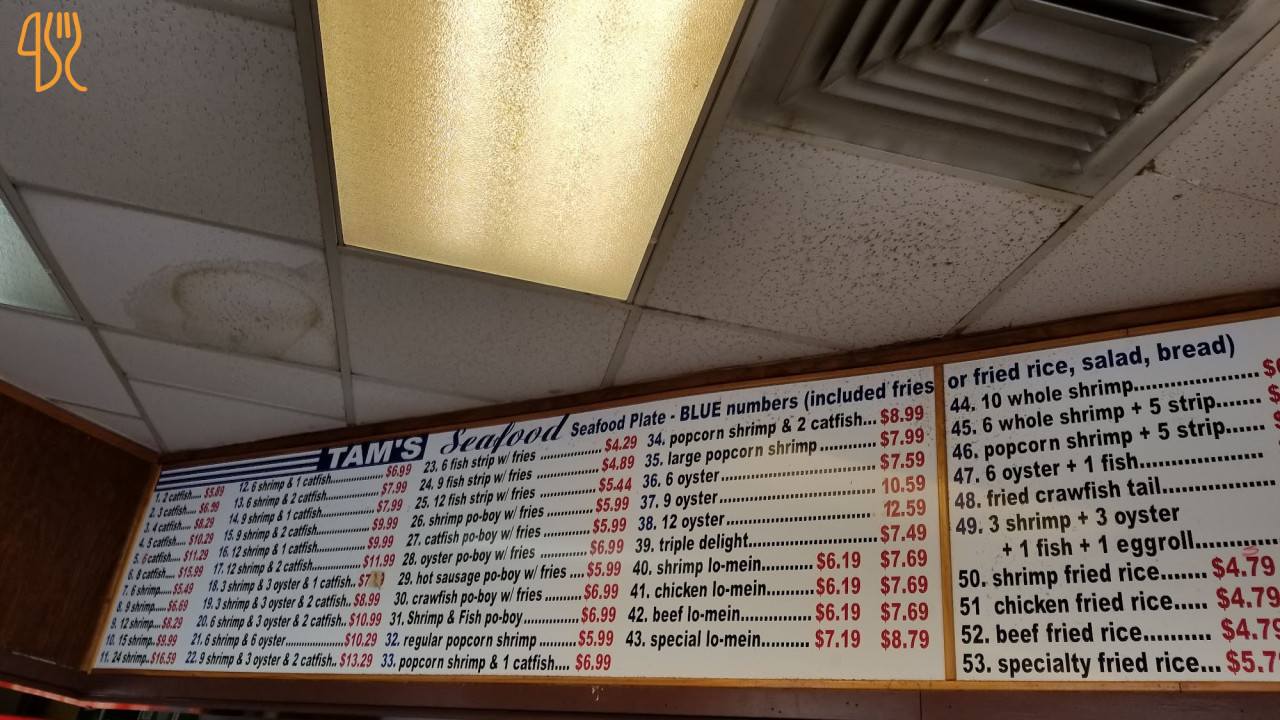 TAM'S Seafood Seafood Plate - BLUE numbers (included fries or fried rice, salad, bread)
1. 2 catfish.... $5.89
2. 3 catfish.... $6.99
3. 4 catfish.... $8.29
4. 5 catfish.... $10.29
5. 6 catfish.... $11.29
6. 8 catfish.... $15.99
7. 6 shrimp..... $5.49
8. 9 shrimp..... $6.69
9. 12 shrimp.... $8.29
10. 15 shrimp.. $9.99
11. 24 shrimp.. $16.59
12. 6 shrimp & 1 catfish.................. $6.99
13. 6 shrimp & 2 catfish.................. $7.99
14. 9 shrimp & 1 catfish.................. $7.99
15. 9 shrimp & 2 catfish.................. $9.99
16. 12 shrimp & 1 catfish................ $9.99
17. 12 shrimp & 2 catfish................ $11.99
18. 3 shrimp & 3 oyster & 1 catfish.. $7
19. 3 shrimp & 3 oyster & 2 catfish.. $8.99
20. 6 shrimp & 3 oyster & 2 catfish.. $10.99
21. 6 shrimp & 6 oyster..................... $10.29
22. 9 shrimp & 3 oyster & 2 catfish.. $13.29
23. 6 fish strip w/ fries ................ $4.29
24. 9 fish strip w/ fries ................ $4.89
25. 12 fish strip w/ fries .............. $5.44
26. shrimp po-boy w/ fries ......... $5.99
27. catfish po-boy w/ fries ......... $5.99
28. oyster po-boy w/ fries .......... $6.99
29. hot sausage po-boy w/ fries .... $5.99
30. crawfish po-boy w/ fries ....... $6.99
31. Shrimp & Fish po-boy............. $6.99
32. regular popcorn shrimp ......... $5.99
33. popcorn shrimp & 1 catfish.... $6.99
34. popcorn shrimp & 2 catfish... $8.99
35. large popcorn shrimp ............ $7.99
36. 6 oyster................................ $7.59
37. 9 oyster................................ 10.59
38. 12 oyster.............................. 12.59
39. triple delight........................ $7.49
40. shrimp lo-mein.......... $6.19 $7.69
41. chicken lo-mein......... $6.19 $7.69
42. beef lo-mein.............. $6.19 $7.69
43. special lo-mein.......... $7.19 $8.79
44. 10 whole shrimp......................
45. 6 whole shrimp + 5 strip.......
46. popcorn shrimp + 5 strip......
47. 6 oyster + 1 fish...................
48. fried crawfish tail.................
49. 3 shrimp + 3 oyster
+ 1 fish + 1 eggroll............
50. shrimp fried rice....... $4.79
51 chicken fried rice..... $4.79
52. beef fried rice.......... $4.79
53. specialty fried rice...